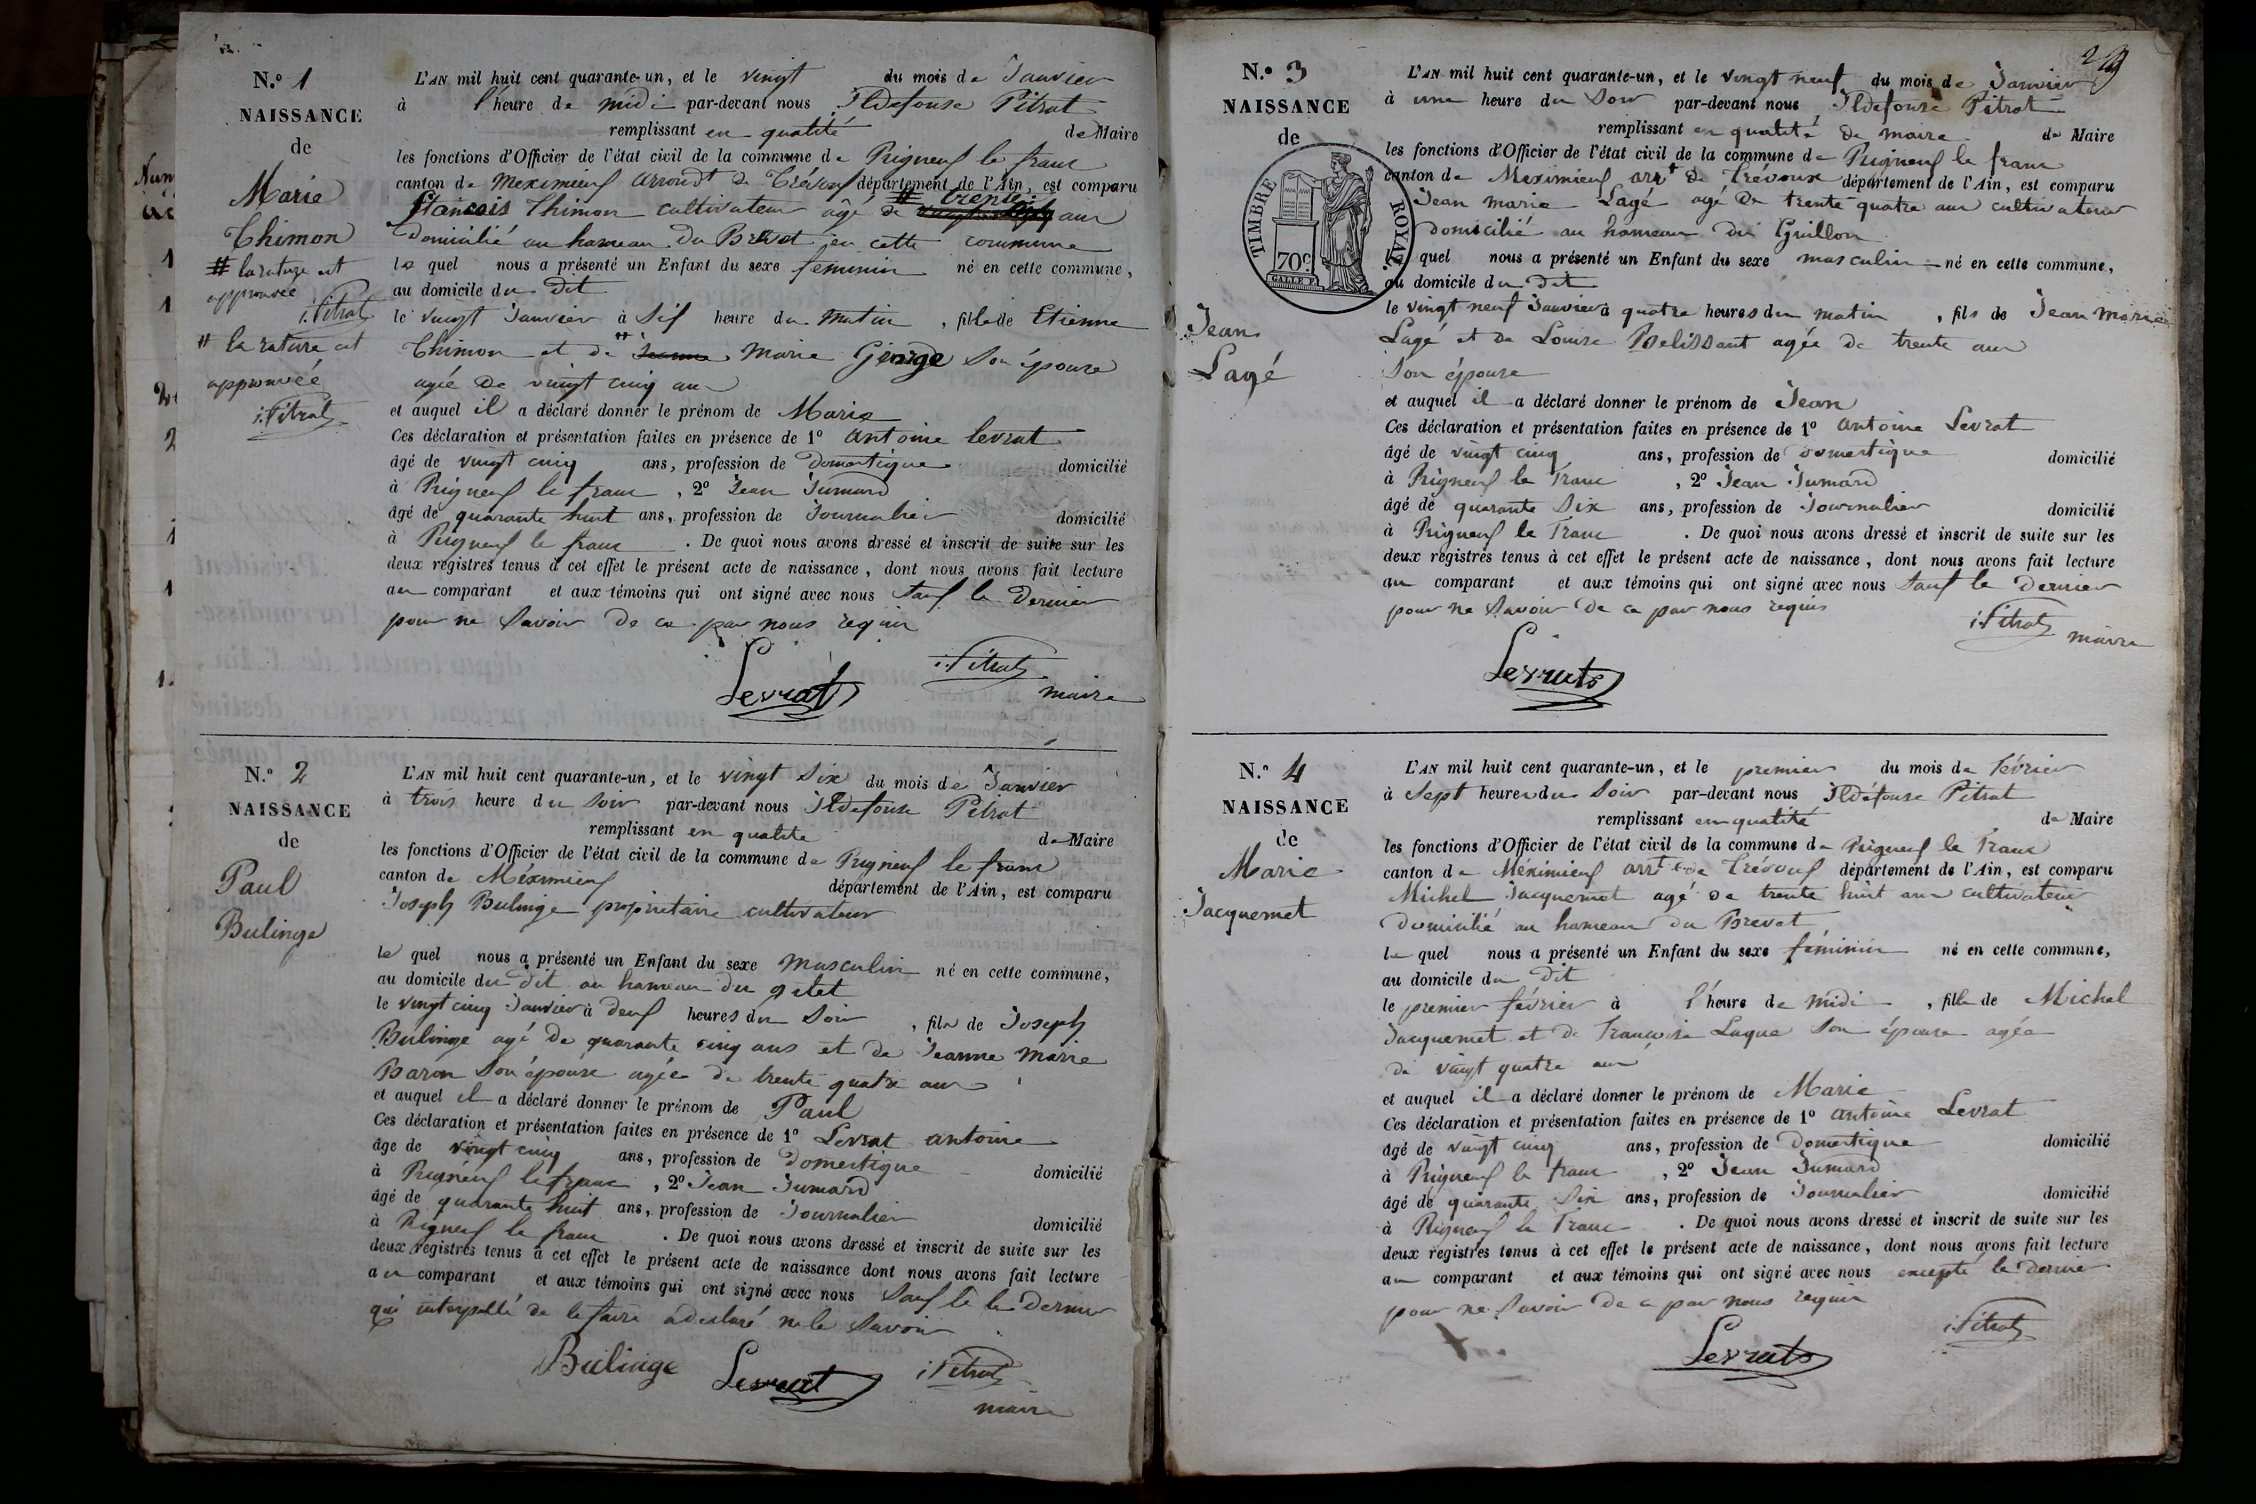 N.o 1
NAISSANCE
de
Marie
Thimon
# la rature est
approuvée
i. Pitrat
# la rature est
approuvée
i. Pitrat
L'AN mil huit cent quarante-un, et le vingt du mois de Janvier
à l'heure de midi par-devant nous Ildefonse Pitrat
remplissant en qualité de Maire
les fonctions d'Officier de l'état civil de la commune de Rigneux le franc
canton de Meximieux arrondt de Trévoux département de l'Ain, est comparu
# trente
francois Thimon cultivateur âgé de ans
Domicilié au hameau du Brevet en cette commune
le quel nous a présenté un Enfant du sexe féminin né en cette commune,
au domicile du dit
le vingt Janvier à Six heure du matin, fille de Etienne
Thimon et de Jeanne Marie George Son épouse
agée de vingt cinq ans
et auquel il a déclaré donner le prénom de Marie
Ces déclaration et présentation faites en présence de 1o antoine levrat
âgé de vingt cinq ans, profession de Domestique domicilié
à Rigneux le franc, 2o Jean Jumard
âgé de quarante huit ans, profession de Journalier domicilié
à Rigneux le franc. De quoi nous avons dressé et inscrit de suite sur les
deux registres tenus à cet effet le présent acte de naissance, dont nous avons fait lecture
au comparant et aux témoins qui ont signé avec nous Sauf le Dernier
pour ne Savoir de ce par nous requis
Levrat i. Pitrat
maire
N.o 2
NAISSANCE
de
Paul
Bulinge
L'AN mil huit cent quarante-un, et le vingt Six du mois de Janvier
à trois heure du Soir par-devant nous Ildefonse Pitrat
remplissant en qualité de Maire
les fonctions d'Officier de l'état civil de la commune de Rigneux le franc
canton de Meximieux département de l'Ain, est comparu
Joseph Bulinge propriétaire cultivateur
le quel nous a présenté un Enfant du sexe Masculin né en cette commune,
au domicile du dit au hameau du
le vingt cinq Janvier à deux heures du Soir, fils de Joseph
Bulinge agé de quarante cinq ans et de Jeanne Marie
Baron Son épouse agée de trente quatre ans
et auquel il a déclaré donner le prénom de Paul
Ces déclaration et présentation faites en présence de 1o Levrat antoine
âge de vingt cinq ans, profession de Domestique domicilié
à Rigneux le franc, 2o Jean Jumard
âgé de quarante huit ans, profession de Journalier domicilié
à Rigneux le franc. De quoi nous avons dressé et inscrit de suite sur les
deux registres tenus à cet effet le présent acte de naissance dont nous avons fait lecture
au comparant et aux témoins qui ont signé avec nous Sauf le le Dernier
qui interpellé de le faire a déclaré ne le Savoir
Bulinge Levrat i. Pitrat
maire
N.o 3
NAISSANCE
de
TIMBRE ROYAL
70c
Jean
Lagé
L'AN mil huit cent quarante-un, et le vingt neuf du mois de Janvier
à une heure du Soir par-devant nous Ildefonse Pitrat
remplissant en qualité de maire de Maire
les fonctions d'Officier de l'état civil de la commune de Rigneux le franc
canton de Meximieux arrt de Trévoux département de l'Ain, est comparu
Jean marie Lagé agé de trente quatre ans cultivateur
domicilié au hameau du Guillon
le quel nous a présenté un Enfant du sexe masculin né en cette commune,
au domicile du dit
le vingt neuf Janvier à quatre heures du matin, fils de Jean Marie
Lagé et de Louise Pelissant agée de trente ans
Son épouse
et auquel il a déclaré donner le prénom de Jean
Ces déclaration et présentation faites en présence de 1o Antoine Levrat
âgé de vingt cinq ans, profession de Domestique domicilié
à Rigneux le Franc, 2o Jean Jumard
âgé de quarante Six ans, profession de Journalier domicilié
à Rigneux le Franc. De quoi nous avons dressé et inscrit de suite sur les
deux registres tenus à cet effet le présent acte de naissance, dont nous avons fait lecture
au comparant et aux témoins qui ont signé avec nous Sauf le dernier
pour ne Savoir de ce par nous requis
Levrat i. Pitrat
maire
N.o 4
NAISSANCE
de
Marie
Jacquemet
L'AN mil huit cent quarante-un, et le premier du mois de Février
à Sept heures du Soir par-devant nous Ildefonse Pitrat
remplissant en qualité de Maire
les fonctions d'Officier de l'état civil de la commune de Rigneux le Franc
canton de Méximieux arrt de Trévoux département de l'Ain, est comparu
Michel Jacquemet agé de trente huit ans cultivateur
domicilié au hameau du Brevet
le quel nous a présenté un Enfant du sexe féminin né en cette commune,
au domicile du dit
le premier février à l'heure de midi, fille de Michel
Jacquemet et de Françoise Laque Son épouse agée
de vingt quatre ans
et auquel il a déclaré donner le prénom de Marie
Ces déclaration et présentation faites en présence de 1o Antoine Levrat
âgé de vingt cinq ans, profession de Domestique domicilié
à Rigneux le Franc, 2o Jean Jumard
âgé de quarante Six ans, profession de Journalier domicilié
à Rigneux le Franc. De quoi nous avons dressé et inscrit de suite sur les
deux registres tenus à cet effet le présent acte de naissance, dont nous avons fait lecture
au comparant et aux témoins qui ont signé avec nous excepté le dernier
pour ne Savoir de ce par nous requis
Levrat i. Pitrat